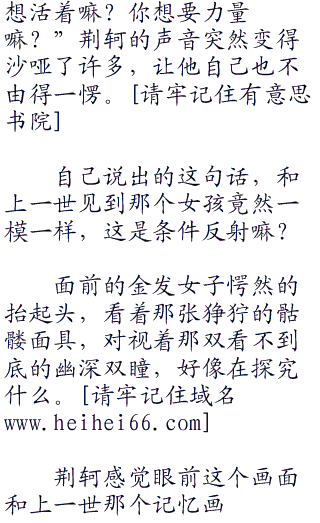 想活着嘛？你想要力量
嘛？”荆轲的声音突然变得
沙哑了许多，让他自己也不
由得一愣。[请牢记住有意思
书院]
自己说出的这句话，和
上一世见到那个女孩竟然一
模一样，这是条件反射嘛？
面前的金发女子愕然的
抬起头，看着那张狰狞的骷
髅面具，对视着那双看不到
底的幽深双瞳，好像在探究
什么。[请牢记住域名
www.heihei66.com]
荆轲感觉眼前这个画面
和上一世那个记忆画